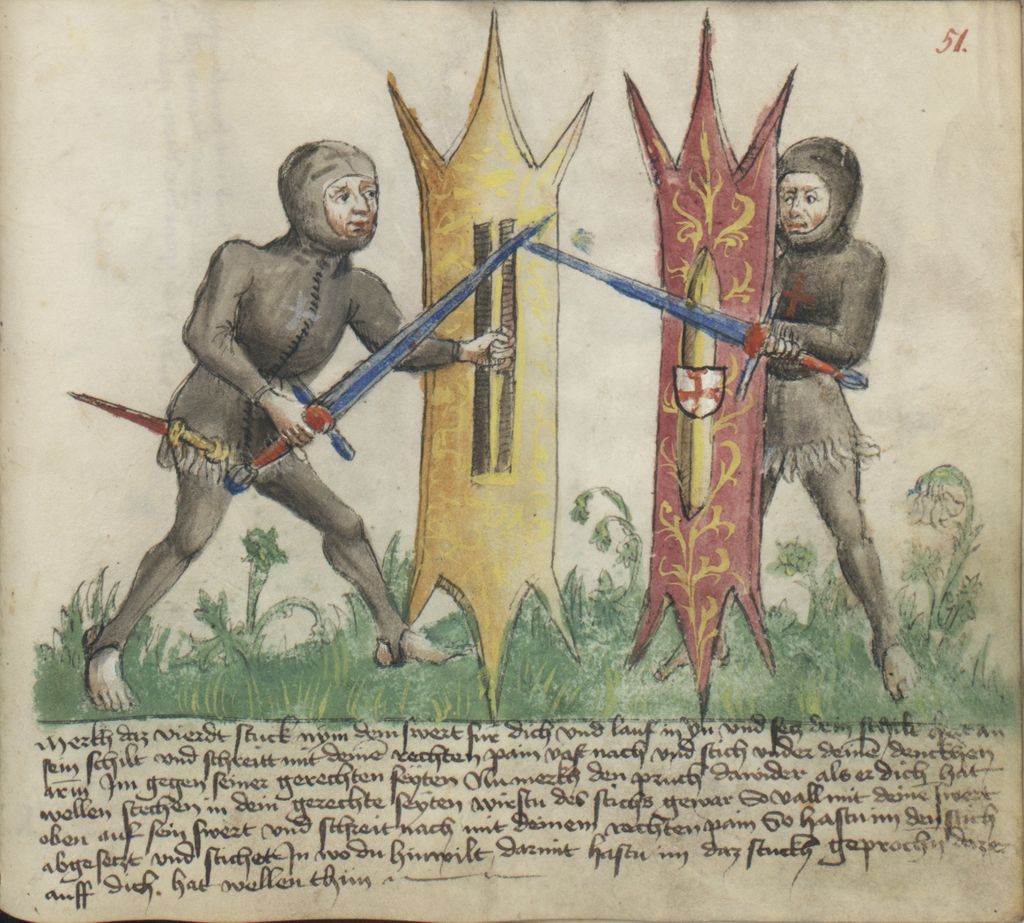 51.
Merkh daz vierdt stuck nym dein swert für dich und lauf in yn und secz dein schilt hert an
sein schilt und schreitt mit deinē rechten pain vast nach und stich under deinē denckhen
arm Im gegen seiner gerechten seyten Nu merkh den pruch darwider als er dich hat
wellen stechen in dein gerechte seyten wirstu des stichs gewar So vall mit deinē swert
oben auf sein swert und schreit nach mit deinem rechten pain So hastu im den stich
abgesetzt und stichet In wo du hin wilt damit hastu im daz stuckh geprochñ daz er
auff dich. hat wellen thun